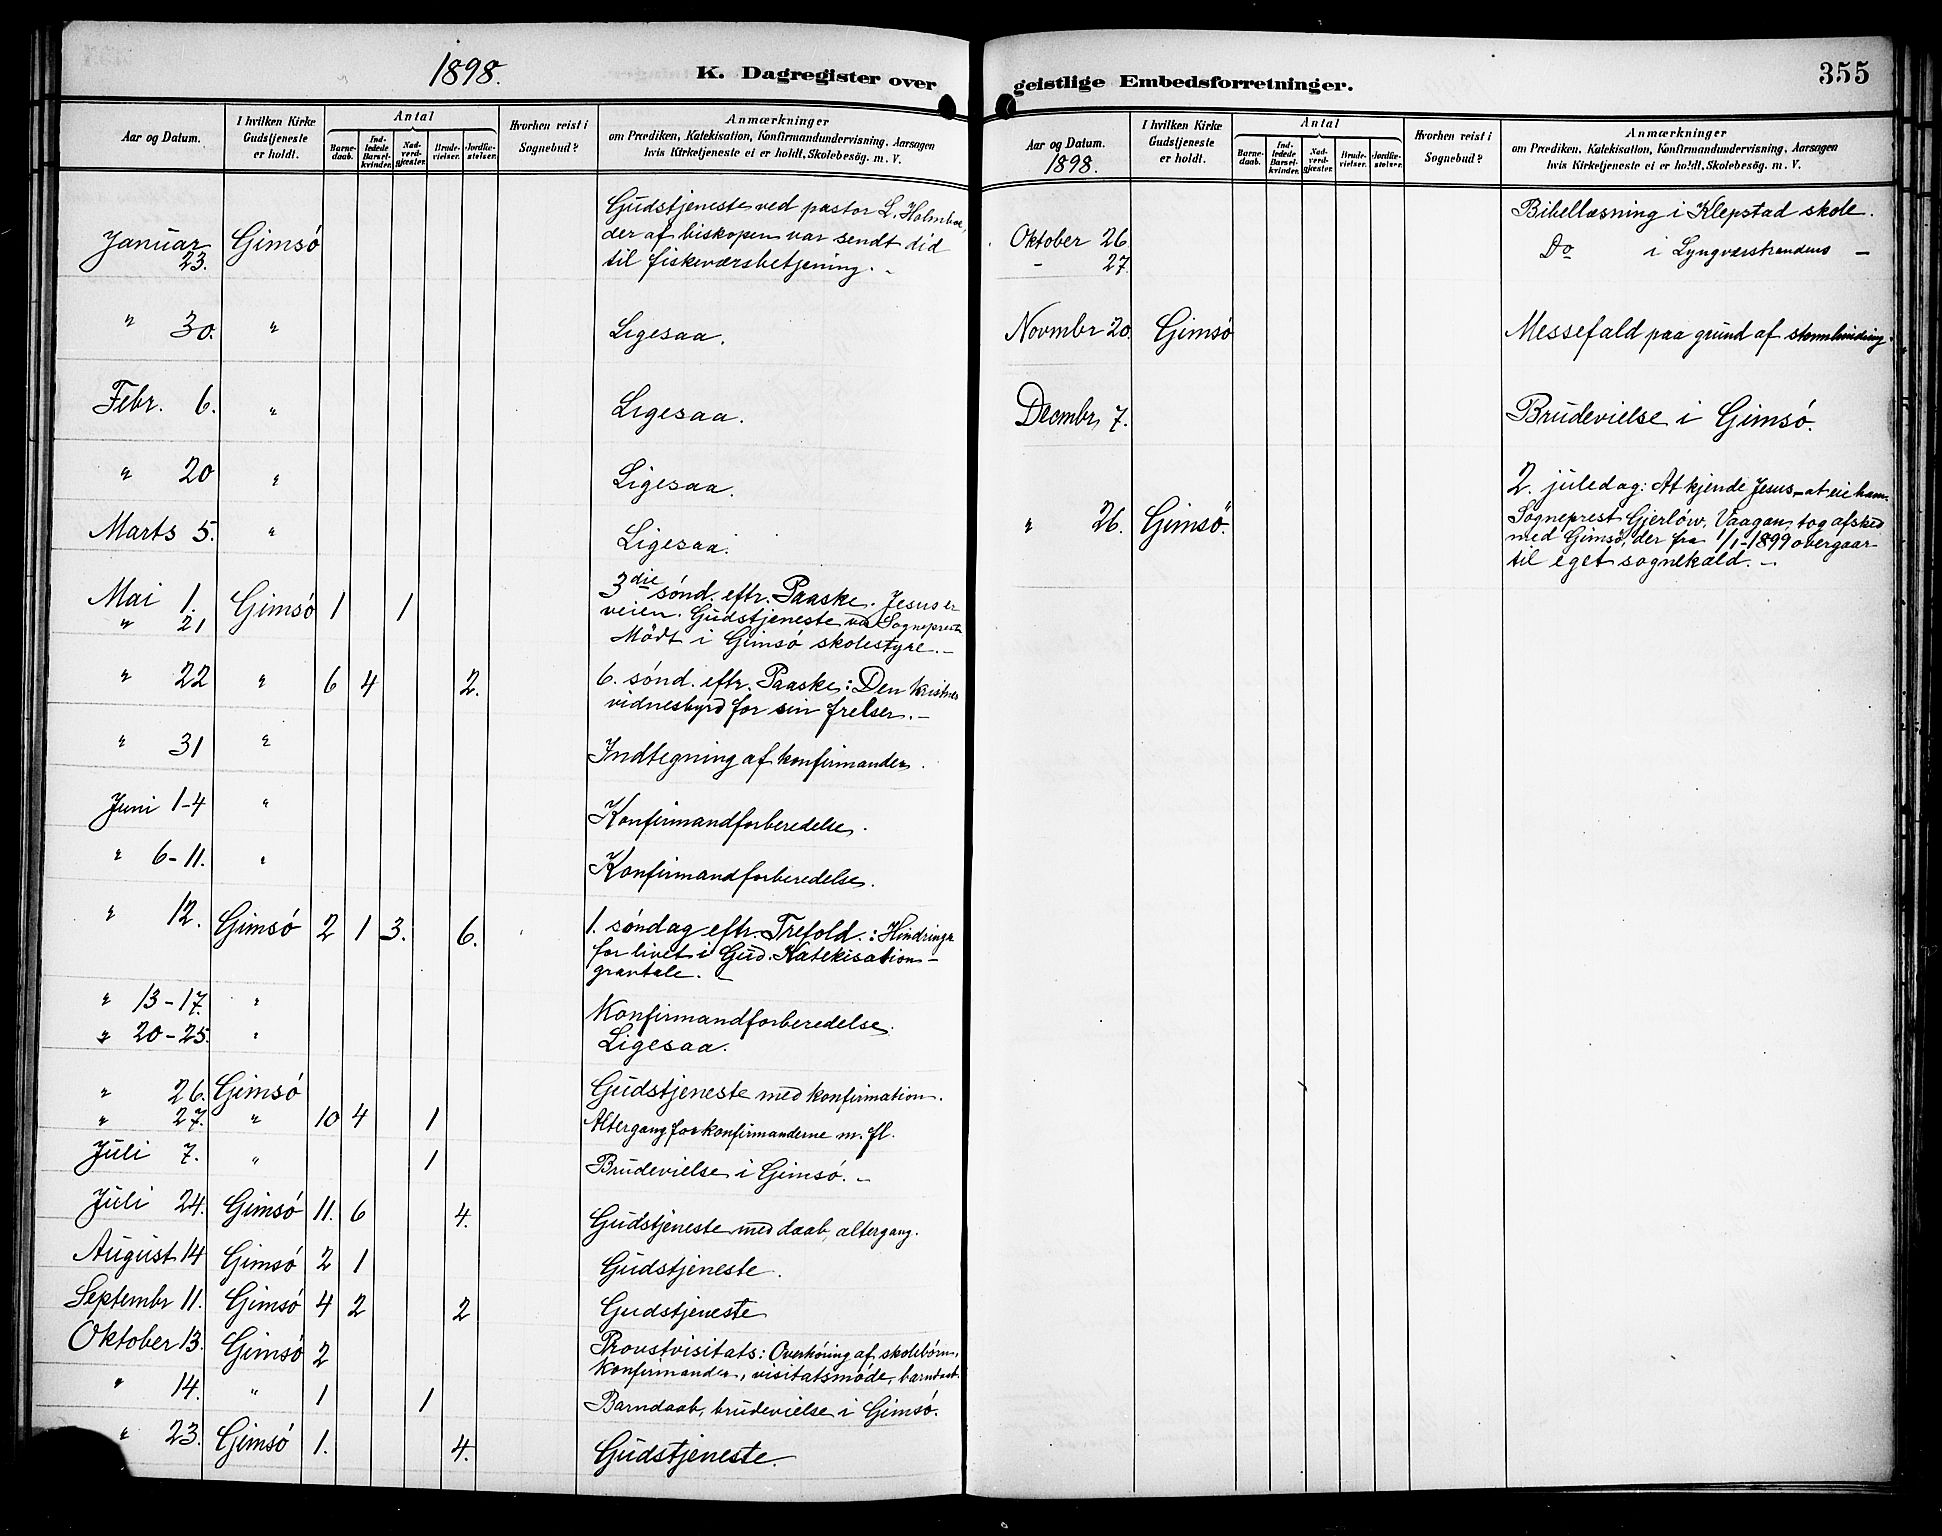 1898.
K. Dagregister over
Aar og Datum.
I hvilken Kirke Gudstjeneste er holdt.
Antal
Barnedaab.
Indledede Barselkvinder.
Nadverdgjæster.
Brudevielser.
Jordfæstelser.
Hvorhen reist i Sognebud?
Anmærkninger
om Prædiken, Katekisation, Konfirmandundervisning, Aarsagen
hvis Kirketjeneste ei er holdt, Skolebesög. m. V.
Januar 23. Gimsö Gudstjeneste ved pastor L. Holmboe,
der af biskopen var sendt did
til fiskeværsbetjening. -
" 30. " Ligesaa.
Febr. 6. " Ligesaa.
" 20 " Ligesaa.
Marts 5. " Ligesaa.
Mai 1. Gimsö 1 1 3die sönd. eftr. Paaske. Jesus er
veien. Gudstjeneste ved Sogneprest
" 21 Mödt i Gimsö skolestyre. -
" 22 " 6 4 2. 6. sönd. eftr. Paaske: Den kristnes
vidnesbyrd for sin frelser. -
" 31 " Indtegning af konfirmander.
Juni 1-4 " Konfirmandforberedelse.
" 6-11. " Konfirmandforberedelse.
" 12. Gimsö 2 1 3. 6. 1. söndag eftr. Trefold.: Hindringer
for livet i Gud. Katekisation -
gravtale. -
" 13-17. " Konfirmandforberedelse.
" 20-25. " Ligesaa.
" 26. Gimsö Gudstjeneste med konfirmation.
" 27. " 10 4 1 Altergang for konfirmanderne m. fl.
Juli 7. " 1 Brudevielse i Gimsö. -
Juli 24. Gimsö 11. 6 4. Gudstjeneste med daab, altergang.
August 14 Gimsö 2 1 Gudstjeneste.
Septembr 11. Gimsö 4 2 2 Gudstjeneste
Oktober 13. Gimsö 2 Provstvisitats: Overhöring af skolebörn,
konfirmander, visitatsmöde, barndaab.
" 14. " 1 1 Barndaab, brudevielse i Gimsö.
" 23. Gimsö 1. 4. Gudstjeneste.
geistlige Embedsforretninger.
355
Aar og Datum.
1898.
I hvilken Kirke Gudstjeneste er holdt.
Antal
Barnedaab.
Indledede Barselkvinder.
Nadverdgjæster.
Brudevielser.
Jordfæstelser.
Hvorhen reist i Sognebud?
Anmærkninger
om Prædiken, Katekisation, Konfirmandundervisning, Aarsagen
hvis Kirketjeneste ei er holdt, Skolebesög. m. V.
Oktober 26 Bibellæsning i Klepstad skole.
- 27. Do i Lyngværstrandens -
Novmbr 20. Gimsö Messefald paa grund af stormhindring.
Decmbr 7. Brudevielse i Gimsö.
" 26. Gimsö. 2. juledag: At kjende Jesus - at eie ham.
Sogneprest Gjerlöw, Vaagan, tog afsked
med Gimsö, der fra 1/1-1899 overgaar
til eget sognekald. -